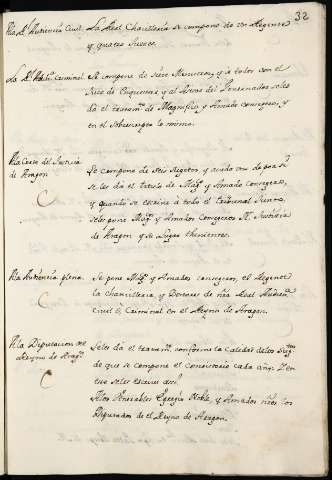 32
Pª la Audiencia Civil. La Real Chancilleria se compone de un Regente
y quatro Jueces.
La Rl. Audª. Criminal. Se compone de Juezes y a todos con el
Juez de Enquestas y al Governador se les
da el tratamº. de Magnificos y Amado consegero, y
en el Sobreescrito lo mismo.
Pª la Corte del Justicia
de Aragon
Se compone de seis Sugetos, y quando
se les da el titulo de Magº. y Amado consegero,
y quando se escrive a todo el tribunal Junto,
se les pone Magº. y Amados Consegeros Nº. Justicia
de Aragon y sus Lugar thenientes.
Pª la Audiencia plena.
Se pone Magº. y Amados consegeros, el Regente
la chancilleria, y Doctores de nrª Real Audienª
Civil y Criminal en el Reyno de Aragon.
Pª la Diputacion del
Reyno de Aragº.
Se les da el tratamº. conforme la calidad de los
de que se compone el consistorio cada año. Y en
esse se les escrive assi.
A los Venerables Egregio Noble, y Amados nros los
Diputados de el Reyno de Aragon.